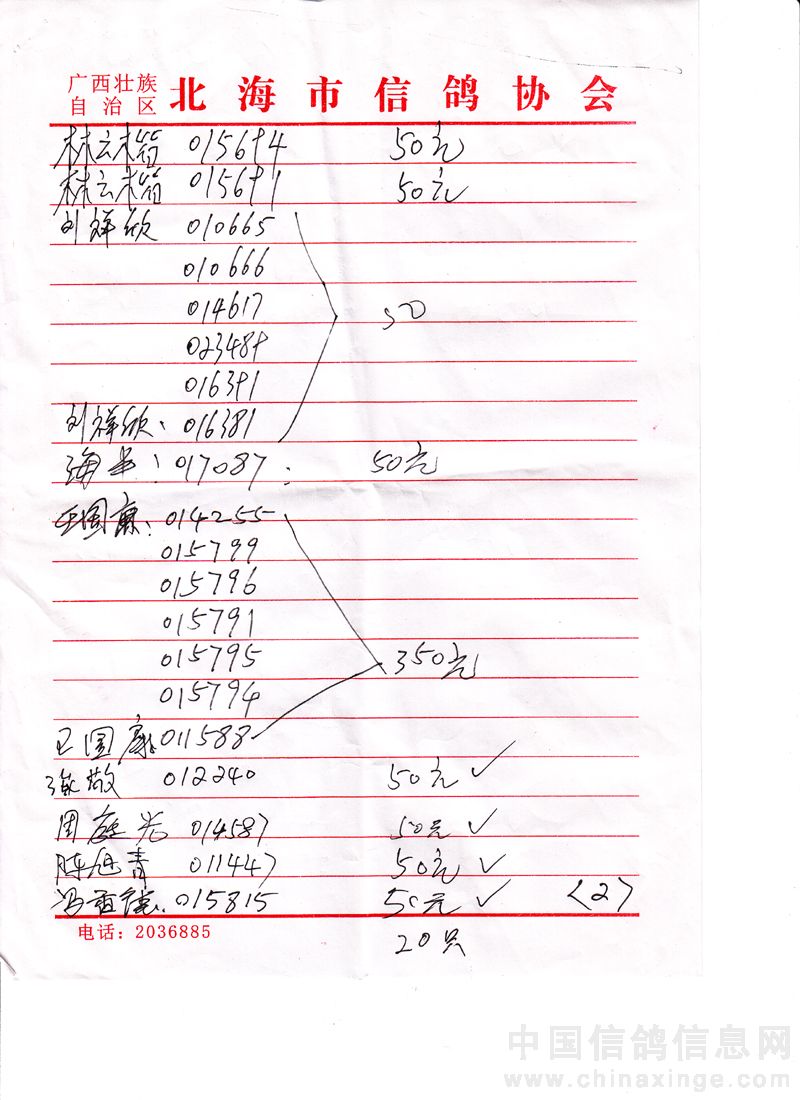 广西壮族
自治区
北海市信鸽协会
林云 015694 50元
林云 015691 50元
刘祥欣 010665
010666
014617 50
023489
016391
刘祥欣: 016381
海 017087: 50元
王国康: 014255
015799
015796
015791
015795 350元
015794
王国康: 011588
张敬 012240 50元 ✓
周庭光 014587 50元 ✓
陈旭青 011447 50元 ✓
冯 015815 50元 ✓ <2>
电话: 2036885
20只
中国信鸽信息网
www.chinaxinge.com